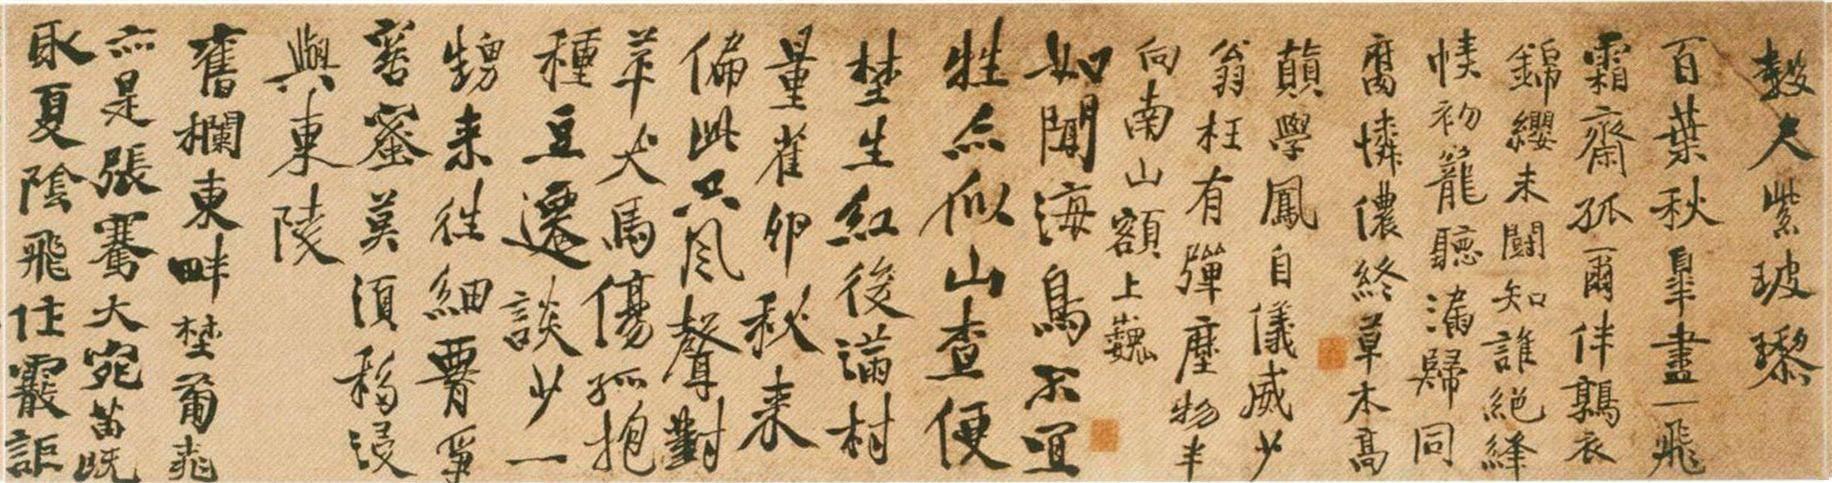 榖大紫玻瓈
百葉秋皐盡一飛
霜齋孤爾伴鶉衣
錦纓未鬪知誰絕絳
情初籠聽滿歸同
腐憐儂終草木高
顛學鳳自儀威少
翁枉有彈塵物半
向南山額上巍
如聞海鳥不宜
牲亦似山查便
埜生紅後滿村
量雀卵秋来
偏此只風聲對
草犬馬傷孤抱
種豆邊談少一
甥来往細腎爭
害蜜莫須移浸
與東陵
舊欄東畔埜葡萄
亦是張騫大宛苗既
取夏陰飛任霰詎